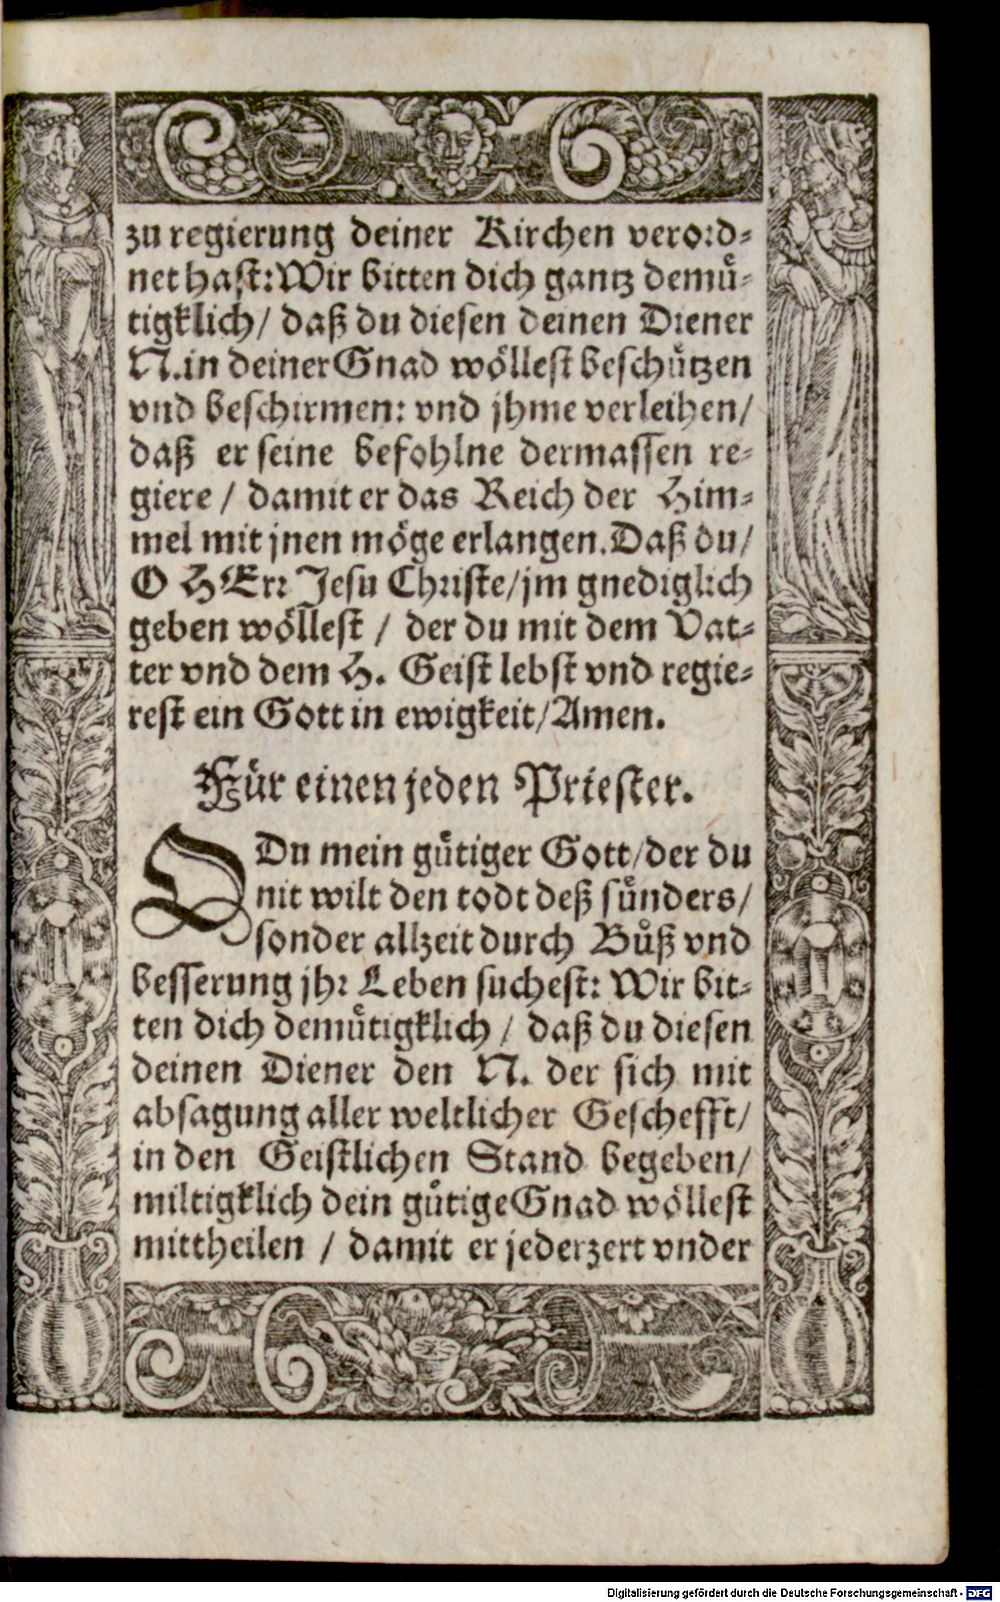 zu regierung deiner Kirchen verord⸗
net hast: Wir bitten dich gantz demuͤ⸗
tigklich/ daß du diesen deinen Diener
N. in deiner Gnad woͤllest beschuͤtzen
vnd beschirmen: vnd jhme verleihen/
daß er seine befohlne dermassen re⸗
giere / damit er das Reich der Him⸗
mel mit jnen moͤge erlangen. Daß du/
O HErr Jesu Christe/ jm gnediglich
geben woͤllest / der du mit dem Vat⸗
ter vnd dem H. Geist lebst vnd regie⸗
rest ein Gott in ewigkeit/ Amen.
Fuͤr einen jeden Priester.
O Du mein guͤtiger Gott/ der du
nit wilt den todt deß suͤnders/
sonder allzeit durch Buͦß vnd
besserung jhr Leben suchest: Wir bit⸗
ten dich demuͤtigklich / daß du diesen
deinen Diener den N. der sich mit
absagung aller weltlicher Geschefft/
in den Geistlichen Stand begeben/
miltigklich dein guͤtige Gnad woͤllest
mittheilen / damit er jederzert vnder
Digitalisierung gefördert durch die Deutsche Forschungsgemeinschaft - DFG